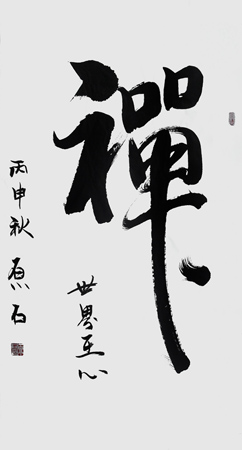 禪
世界心
丙申秋原石